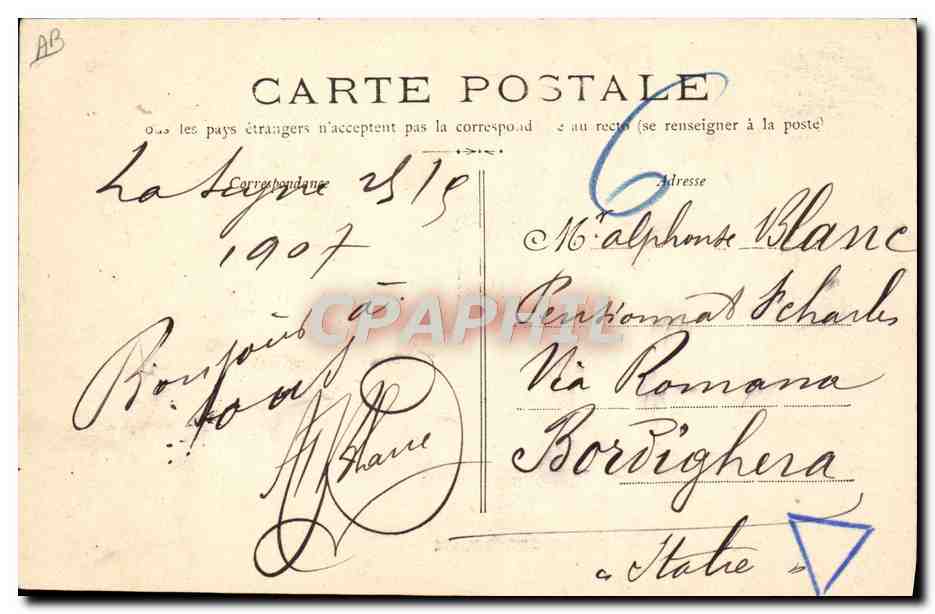 AB
CARTE POSTALE
6
ous les pays étrangers n'acceptent pas la correspond e au recto (se renseigner à la poste)
Correspondance
La Seyne 25/5
1907
Bonjour à
tous
Blanc
Adresse
Mr. alphonse Blanc
Pensionnat St charles
Via Romana
Bordighera
"Italie"
CPAPHIL